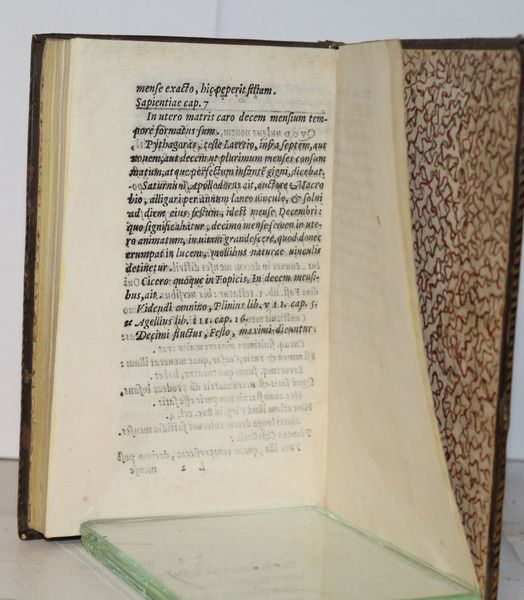 mense exacto, hic peperit filiam.
Sapientiae cap. 7
In utero matris caro decem mensium tem-
pore formatus sum.
Pythagoras, teste Laertio, infra septem, aut
nouem, aut decem ut plurimum menses consum
matum, atque perfectum infantē gigni, dicebat.
Saturnum Apollodorus ait, auctore Macro
bio, alligari per annum laneo uinculo, & solui
ad diem eius festum, idest mense Decembri:
quo significabatur, decimo mense semen in ute-
ro animatum, in uitam grandescere, quod donec
erumpat in lucem, mollibus naturae uinculis
detinetur.
Cicero quoque in Topicis, In decem mensi-
bus, ait.
Videndi omnino, Plinius lib. VII. cap. 5.
& Agellius lib. III. cap. 16.
Decimi fluctus, Festo, maximi dicuntur.